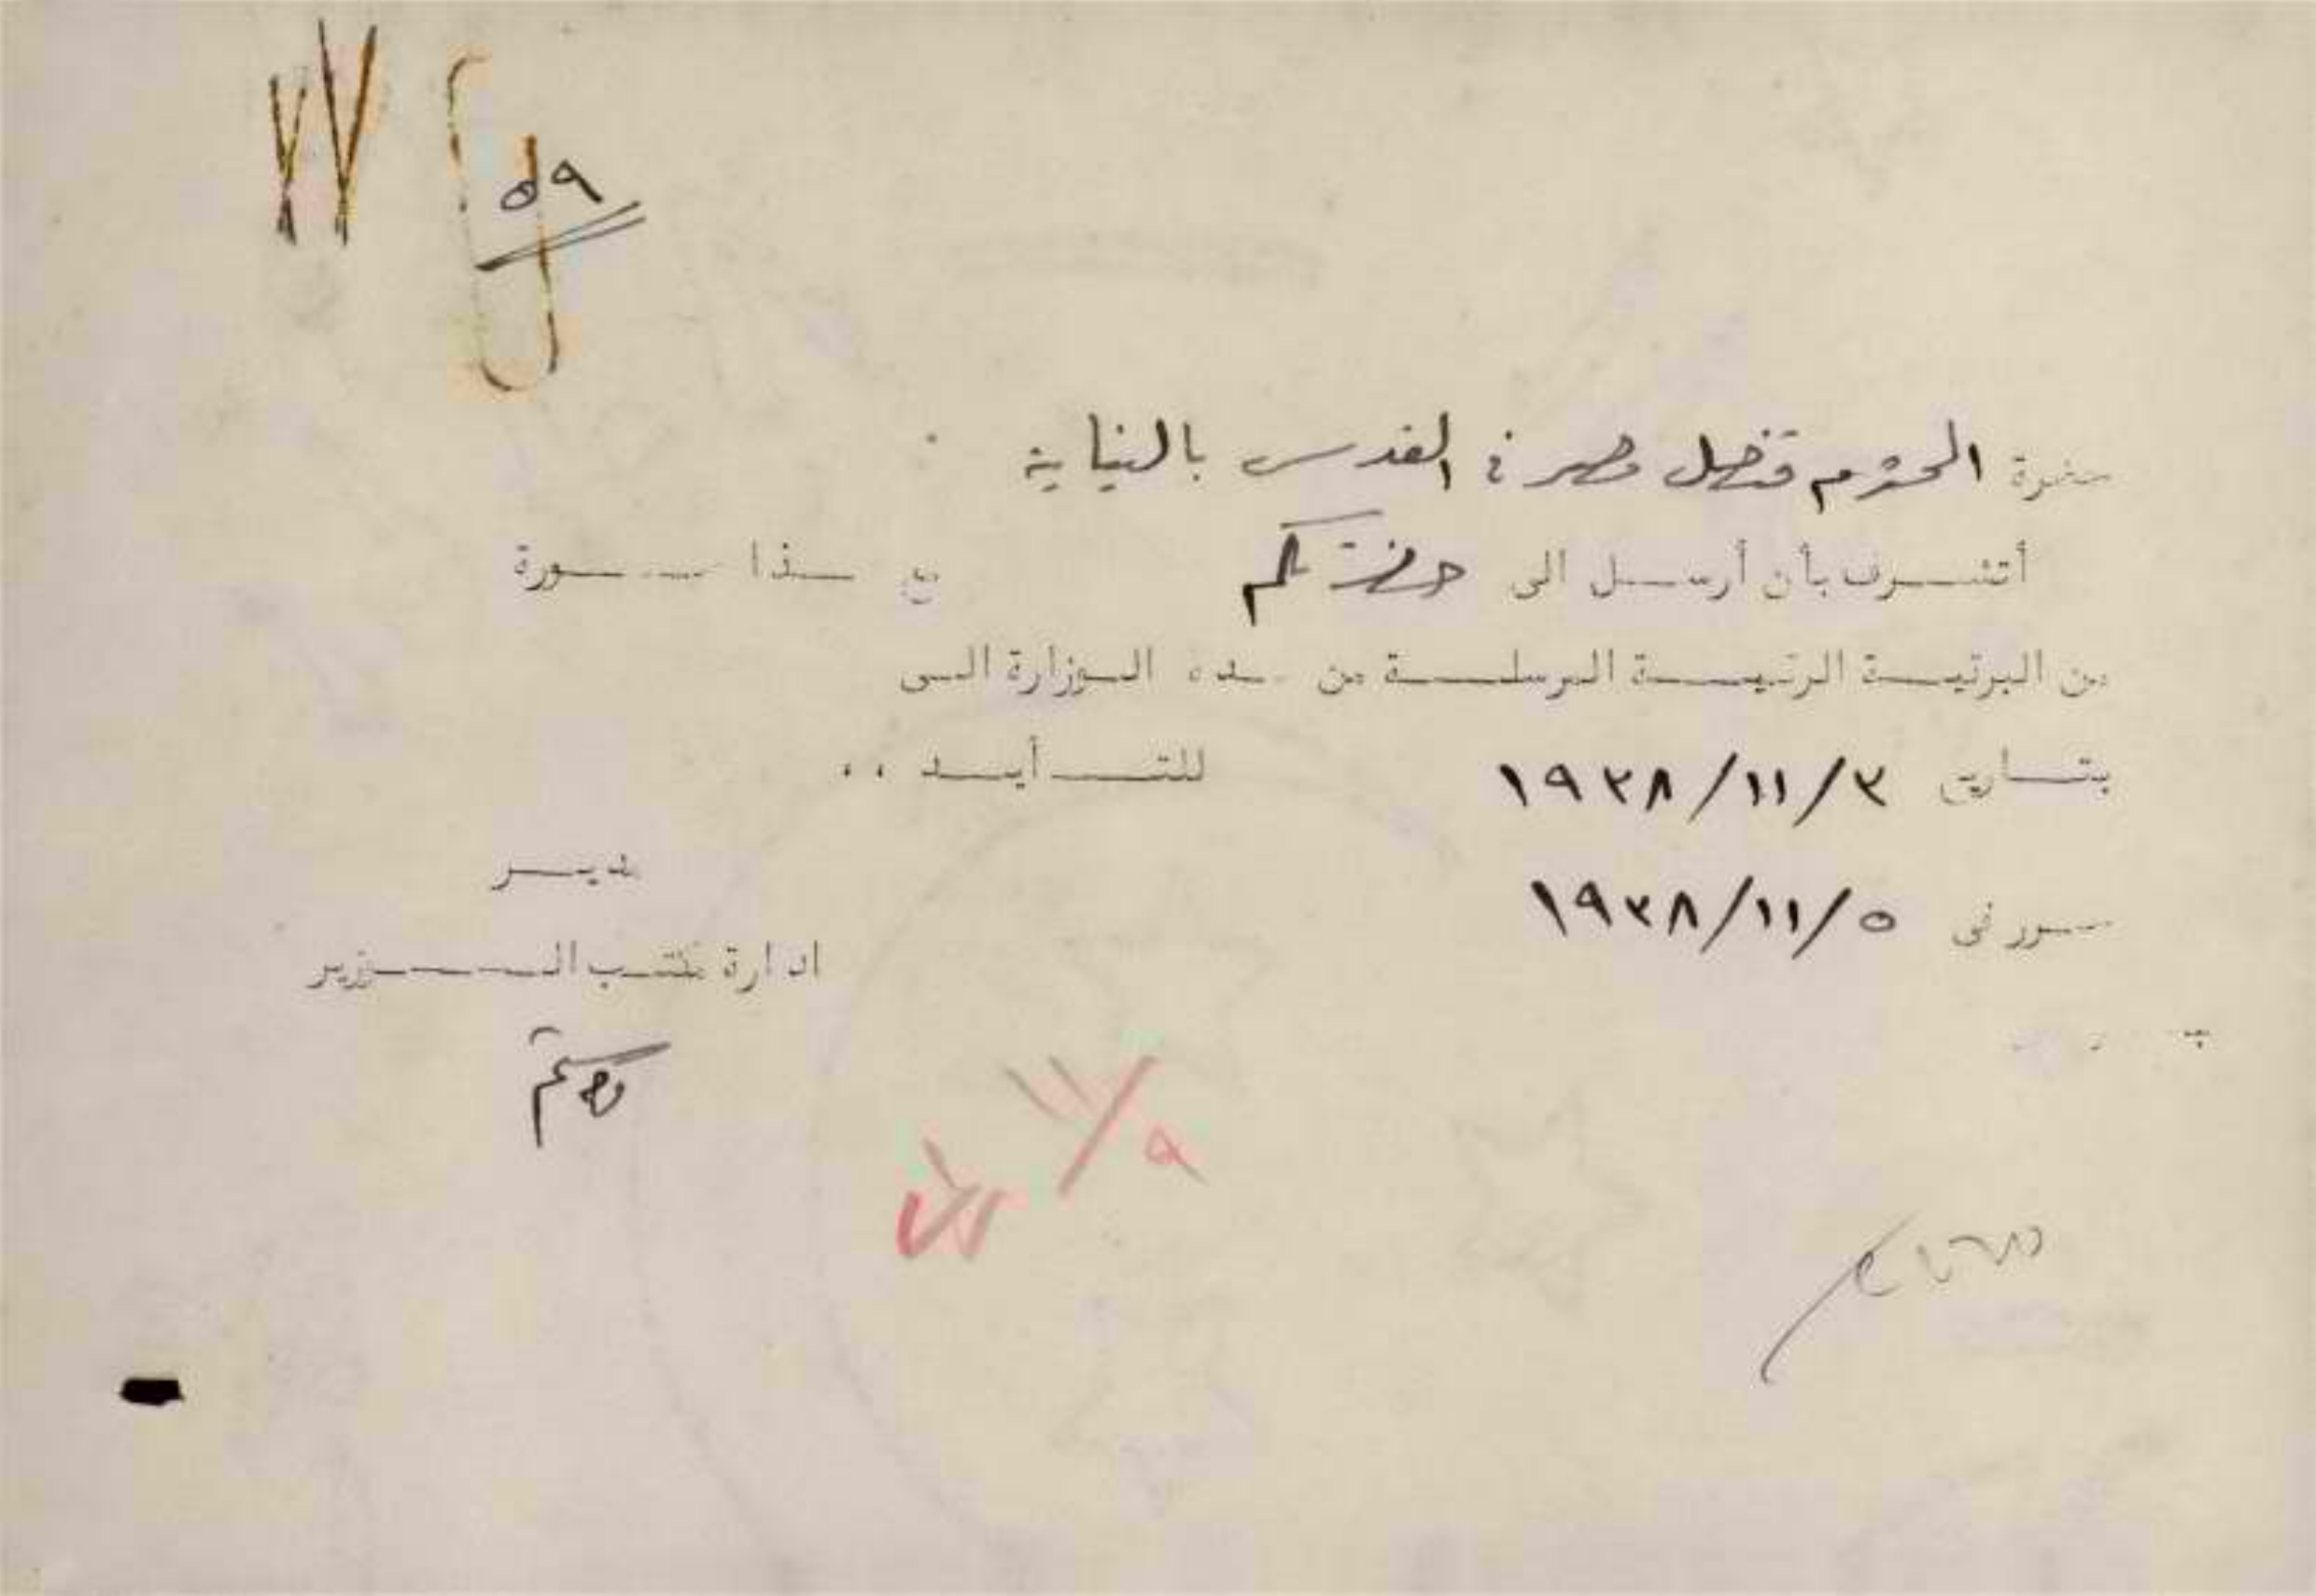 ٥٩
حضرة المحترم قنصل مصر في القدس بالنيابة
أتشرف بأن أرسل الى حضرتكم مع هذا صورة
من البرقية الرئيسة المرسلة من هذه الوزارة الى
بتاريخ ٣/١١/١٩٣٨ للتأييد ٠٠
تحرر فى ٥/١١/١٩٣٨
مدير
ادارة مكتب الوزير
٩/١١